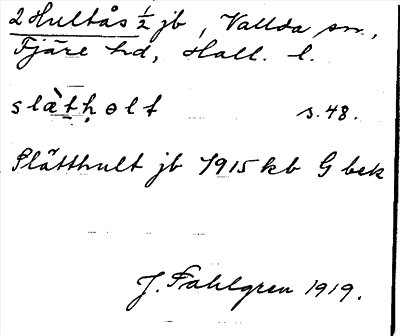 2 Hultås ½ jb, Vallda sn.,
Fjäre hd, Hall. l.
slæ̀tḥɵlt s. 48.
Slätthult jb 1915 kb G bek
J. Fahlgren 1919.